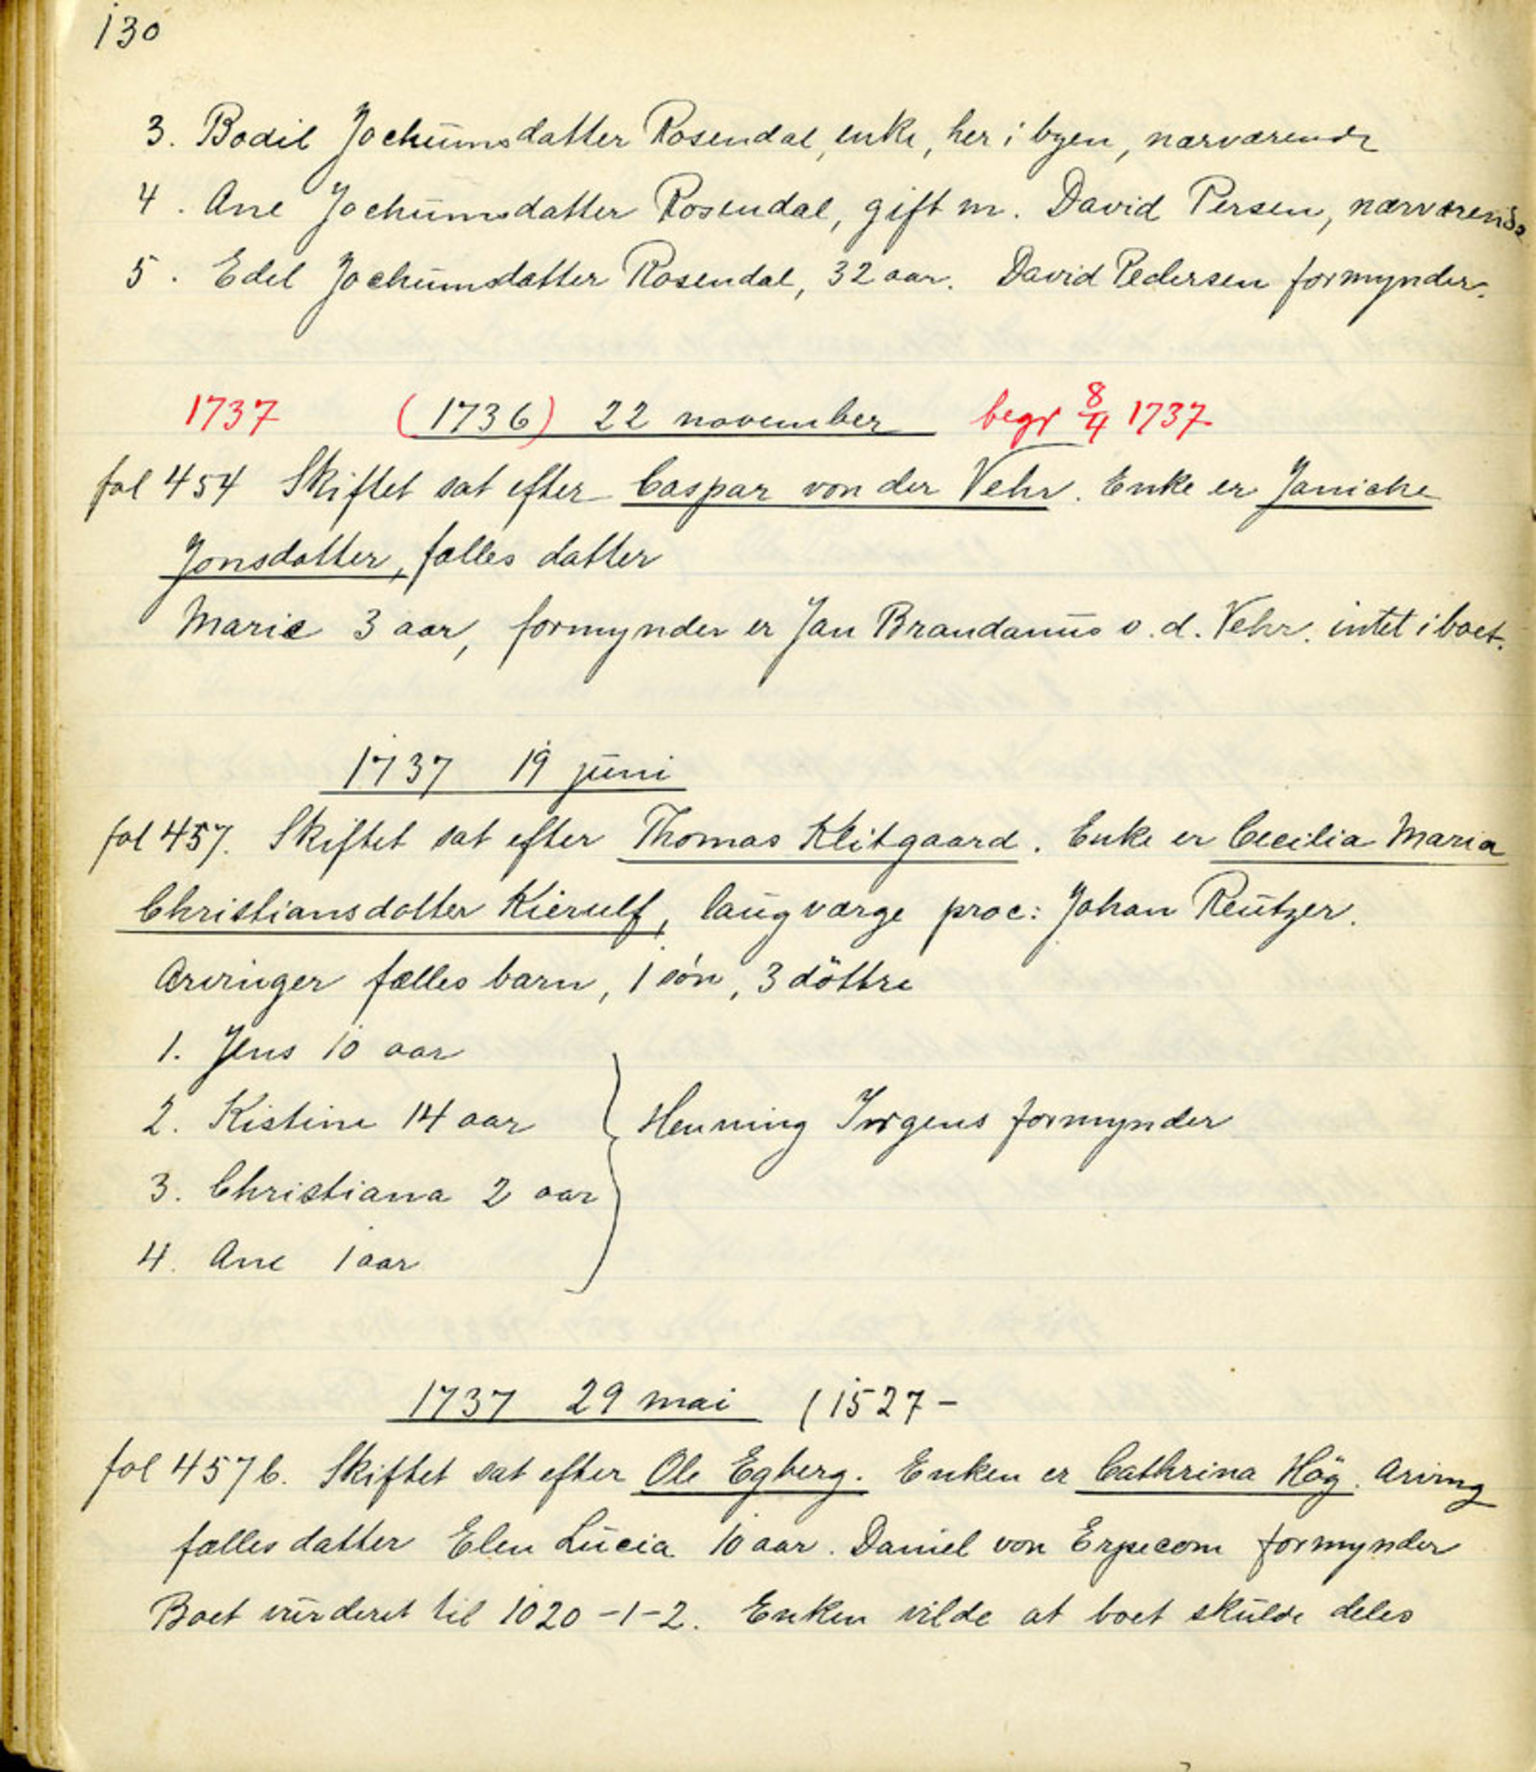 130
3. Bodil Jochumsdatter Rosendal, enke, her i byen, nærværende
4. Ane Jochumsdatter Rosendal, gift m. David Persen, nærværende
5. Edel Jochumsdatter Rosendal, 32 aar. David Pedersen formynder.
1737 (1736) 22 november begr 8/4 1737
fol 454 Skiftet sat efter Caspar von der Vehr. Enke er Janiche
Jonsdatter, fælles datter
Marie 3 aar, formynder er Jan Brandanus v. d. Vehr. intet i boet.
1737 19 juni
fol 457. Skiftet sat efter Thomas Klitgaard. Enke er Cecilia Maria
Christiansdatter Kierulf, laugværge proc: Johan Reutzer.
Arvinger fælles barn, 1 són, 3 döttre
1. Jens 10 aar
2. Kistine 14 aar } Henning Irgens formynder
3. Christiana 2 aar
4. Ane 1 aar
1737 29 mai (1527 -
fol 457 b. Skiftet sat efter Ole Egberg. Enken er Cathrina Hög. Arving
fælles datter Elen Lucia 10 aar. Daniel von Erpecom formynder
Boet vurderet til 1020-1-2. Enken vilde at boet skulde deles